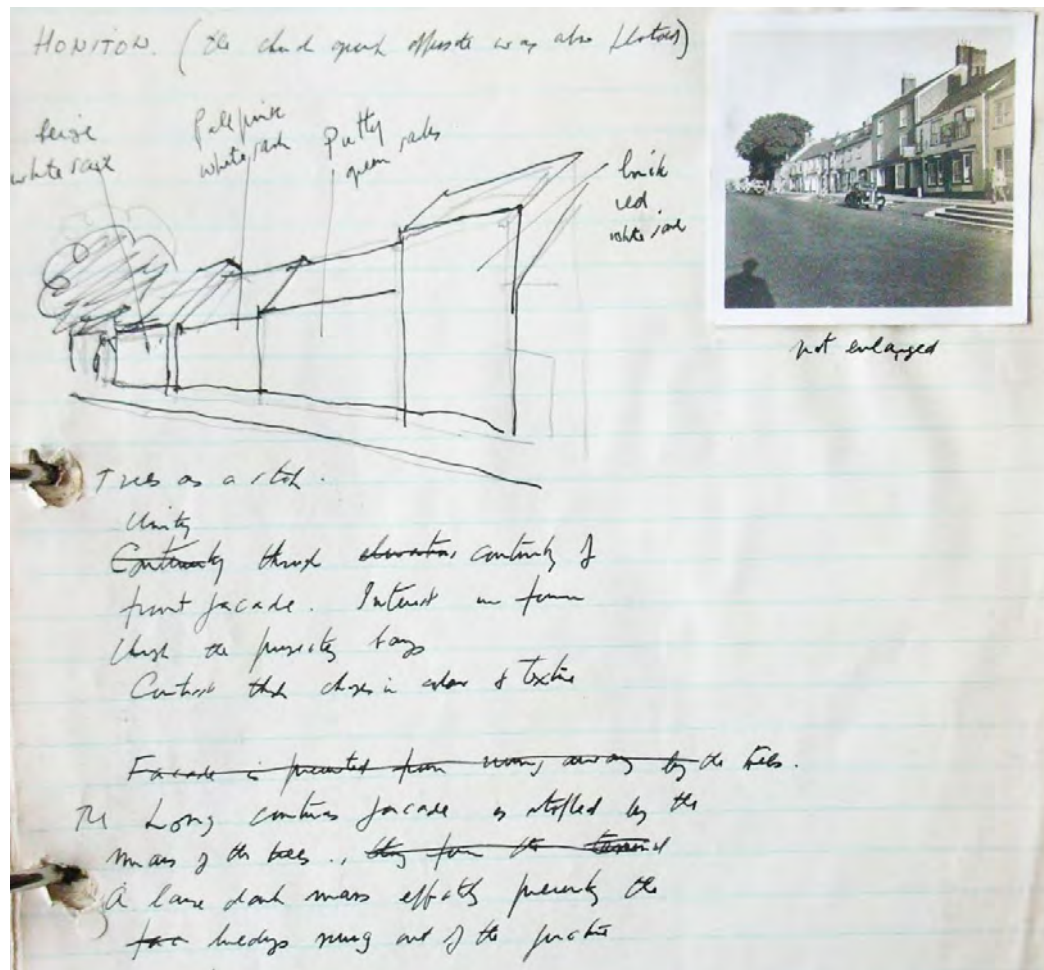 HONITON. (the church opposite was also
beige
white sash
Pale pink
white sash
Putty
green sashes
brick
red
white sash
not enlarged
Trees as a stop.
Unity
Continuity through elevation, continuity of
front facade. Interest in form
through the projecting bays
Contrast through changes in colour & texture
Facade is prevented from running away by the trees.
The Long continuous facade is stopped by the
mass of the trees., they form the terminal
A large dark mass effectively preventing the
buildings running out of the picture